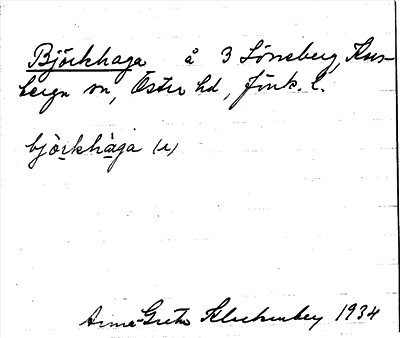 Björkhaga å 3 Lönsberg, Kus-
berga sn, Östra hd, Jönk. l.
björkhaga (e)
Anna-Greta Kluckenberg 1934